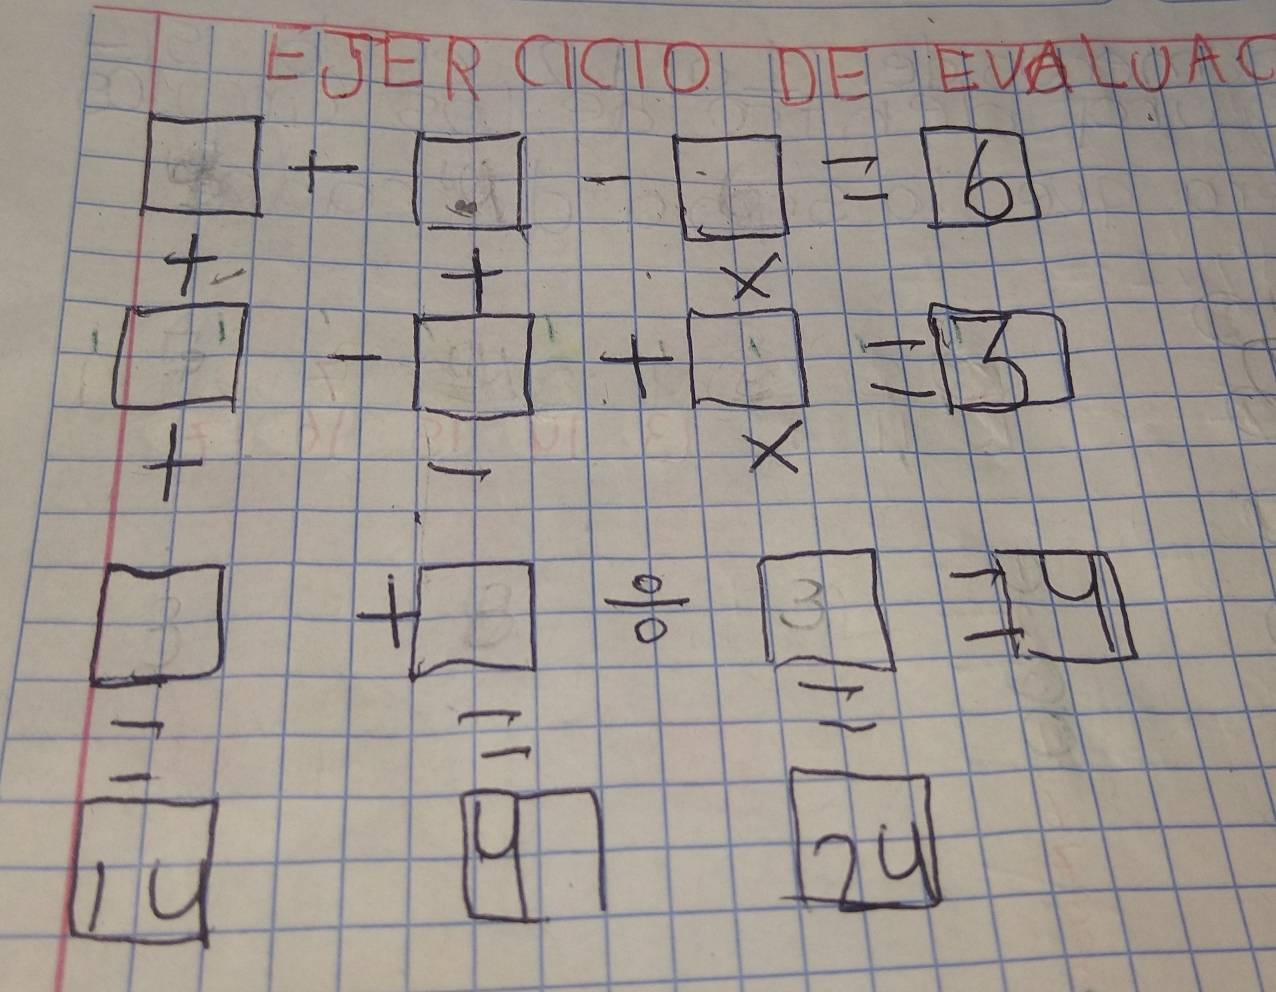 EJERCICIO DE EVALUAC
□ + □ - □ = 6
+ + ×
□ - □ + □ = 3
+ - ×
□ + □ ÷ □ = 4
= = =
14 4 24